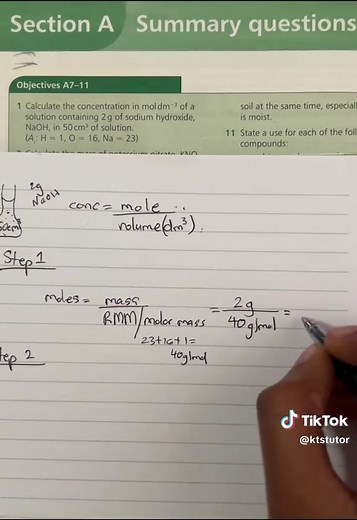 Section A Summary questions
Objectives A7–11
1 Calculate the concentration in mol dm⁻³ of a
solution containing 2 g of sodium hydroxide,
NaOH, in 50 cm³ of solution.
(Aᵣ: H = 1, O = 16, Na = 23)
soil at the same time, especial
is moist.
11 State a use for each of the foll
compounds:
2g
NaOH
50cm³
conc = mole
volume(dm³)
Step 1
moles = mass = 2g =
RMM/molar mass 40g/mol
23+16+1=
40g/mol
tep 2
TikTok
@ktstutor